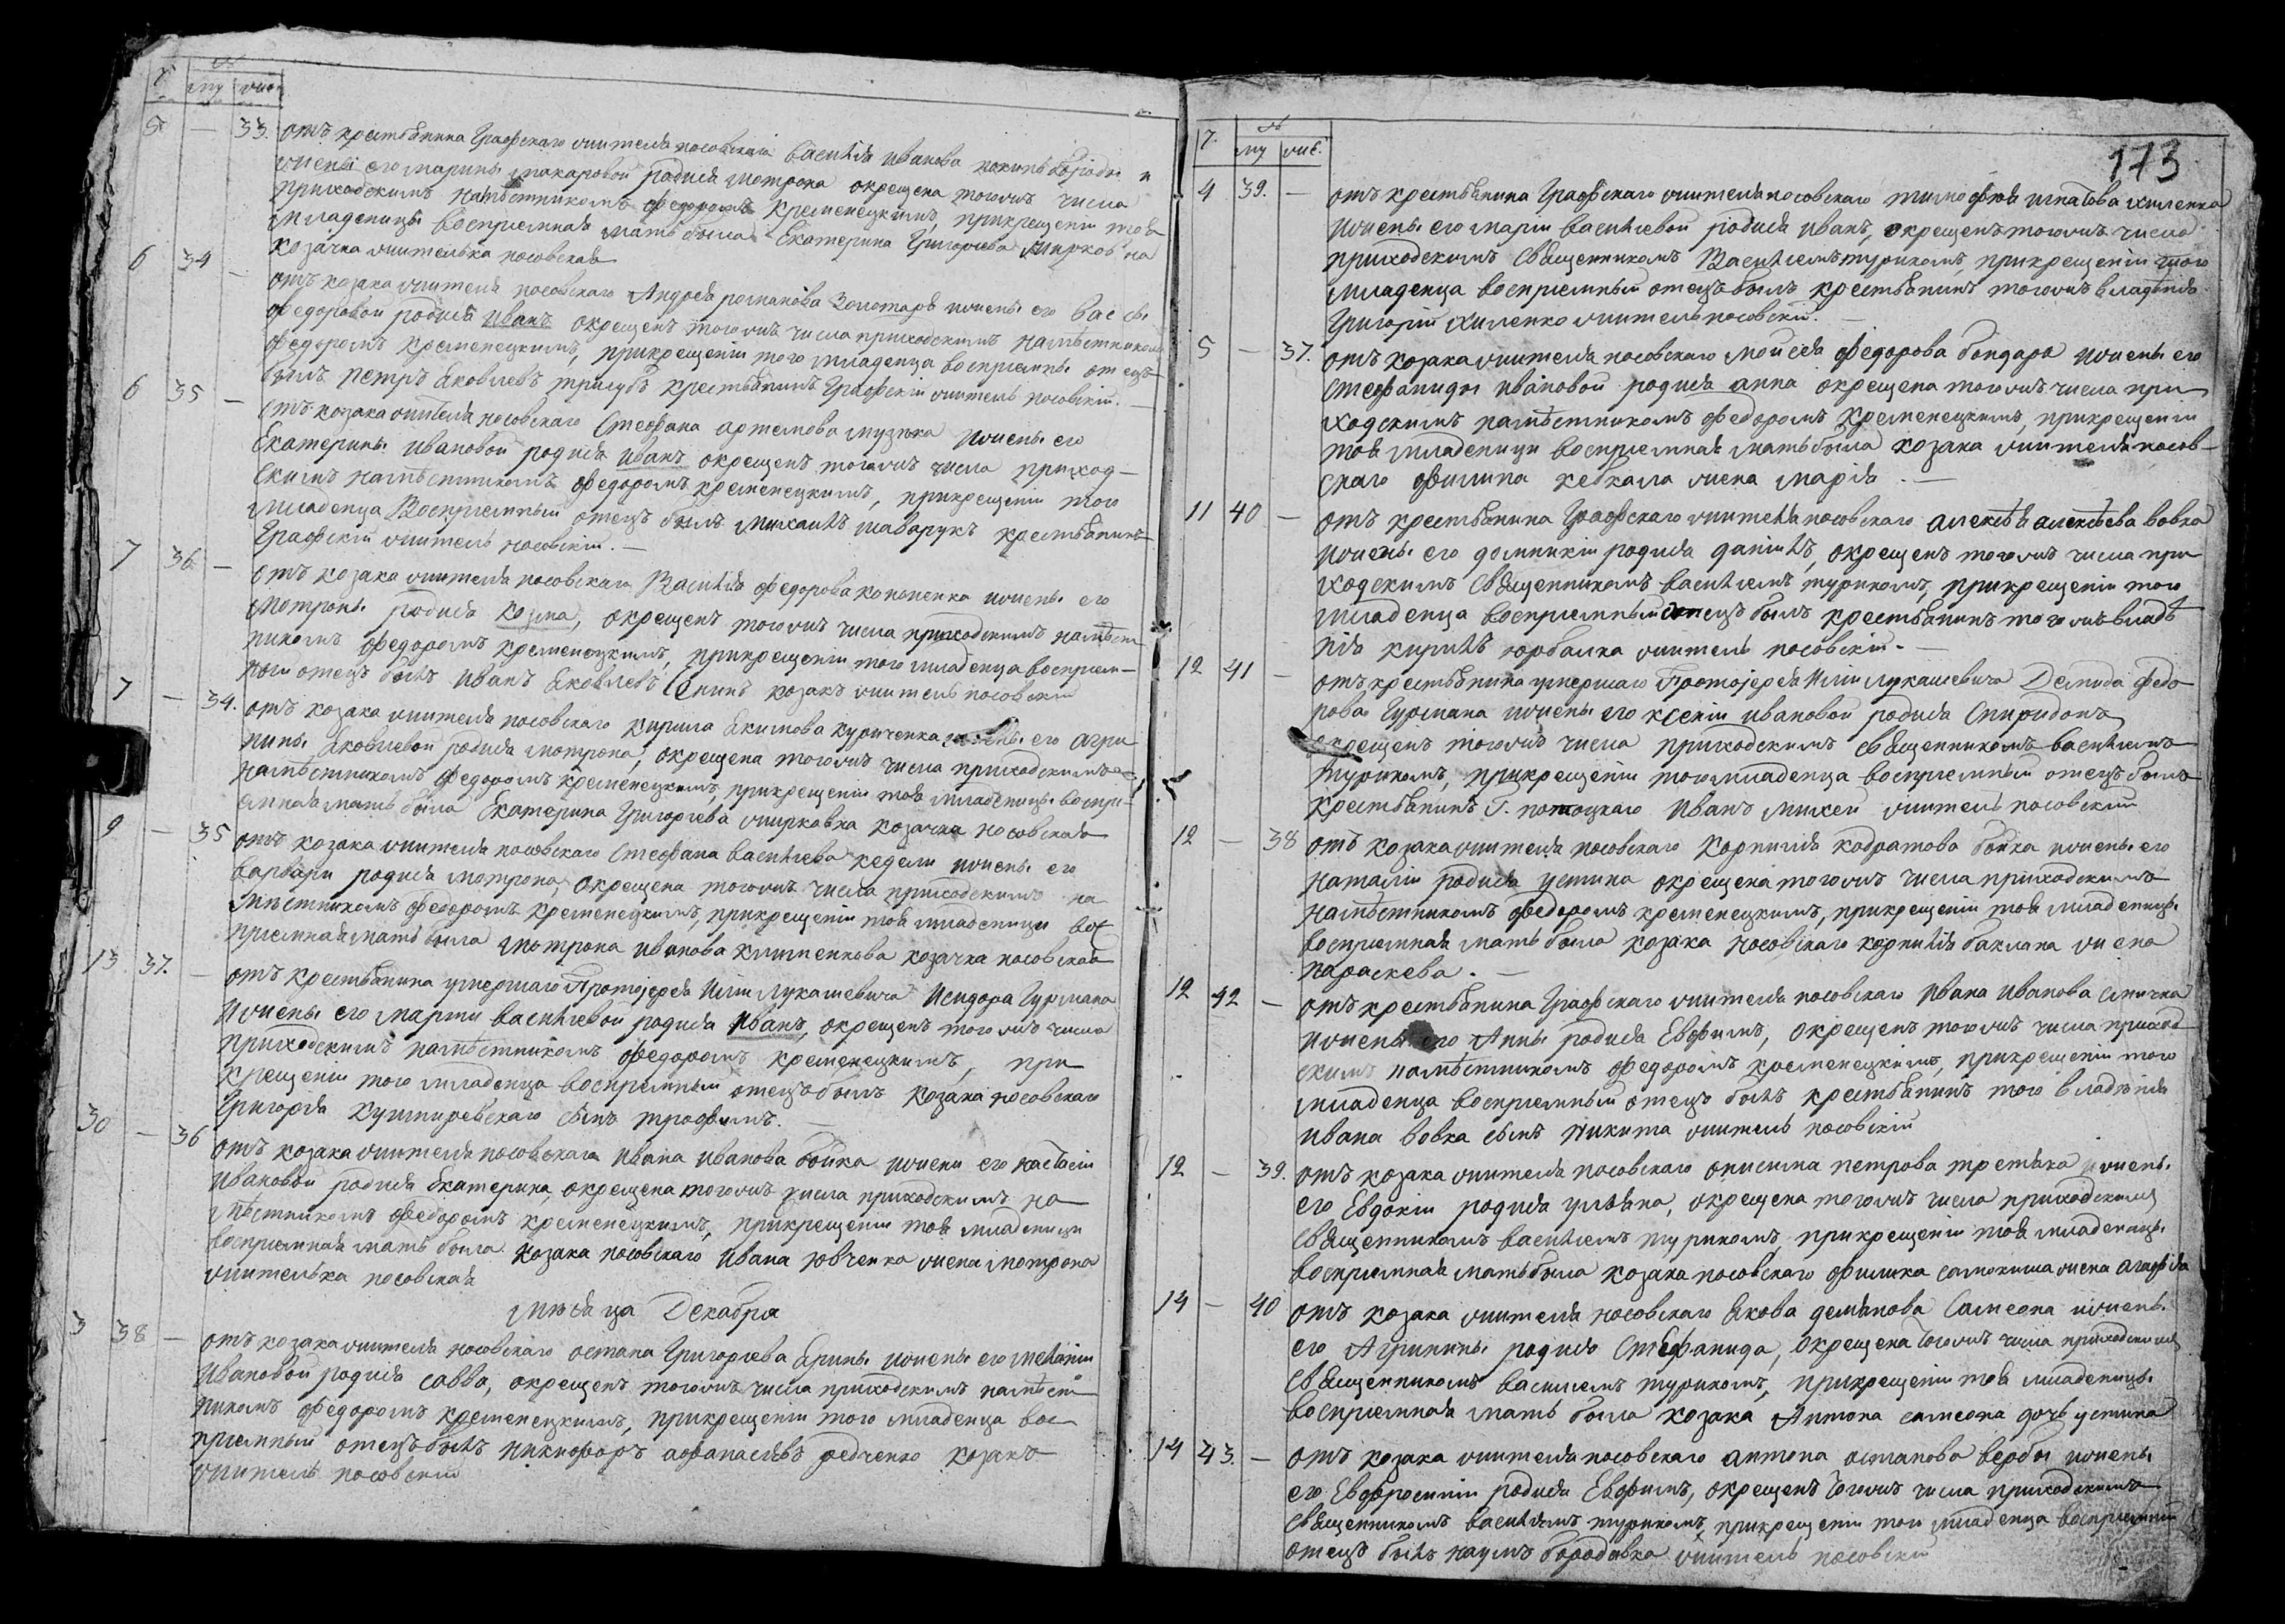 ч.
му
жен.
5 — 33. отъ крестьянина Графскаго жителя носовскаго василія Иванова
жены его марины макаровой родися мотрона окрещена тогожъ числа
приходскимъ намѣстникомъ федоромъ кременецкимъ, прикрещеніи тоя
младеницы воспріемная мать была Екатерина Григорѣева
козачка жителька носовская
6 34 — отъ козака жителя носовскаго Андрея романова Золотаря ижены его
федоровой родися Иванъ окрещенъ тогожъ числа приходскимъ намѣстникомъ
федоромъ кременецкимъ, прикрещеніи того младенца воспріемны отецъ
былъ петръ Яковлевъ тригубъ крестьянинъ Графскій житель носовскій. —
6 35 — отъ козака жителя носовскаго Стефана артемова музыка ижены его
Екатерины Ивановой родися Иванъ окрещенъ тогожъ числа приход-
скимъ намѣстникомъ федоромъ кременецкимъ, прикрещеніи того
младенца Воспріемный отецъ былъ михаилъ шаварукъ крестьянинъ
Графскій житель носовскій. —
7 36 — отъ козака жителя носовскаго Василія федорова кононенка ижены его
мотроны родися козма, окрещенъ тогожъ числа приходскимъ намѣст
никомъ федоромъ кременецкимъ, прикрещеніи того младенца воспріем-
ный отецъ былъ Иванъ Яковлевъ козакъ житель носовскій
7 — 34. отъ козака жителя носовскаго кирила Якимова куриченка ижены его агри
пины Яковлевой родися мотрона, окрещена тогожъ числа приходскимъ
намѣстникомъ федоромъ кременецкимъ, прикрещеніи тоя младеницы воспрі-
емная мать была Екатерина Григорѣева козачка носовская
9 — 35 отъ козака жителя носовскаго Стефана василѣева кедели ижены его
варвари родися мотрона, окрещена тогожъ числа приходскимъ на
мѣстникомъ федоромъ кременецкимъ, прикрещеніи тоя младеници вос
пріемная мать была мотрона иванова клименкова козачка носовская
13 37. — отъ крестьянина умершаго Протоіерея Иліи Лукашевича Исидора Гурмана
ижены его марѳи василѣевой родися Иванъ, окрещенъ тогожъ числа
приходскимъ намѣстникомъ федоромъ кременецкимъ, при
крещеніи того младенца воспріемный отецъ былъ козака носовскаго
Григорія кушнеревскаго сынъ трофимъ. —
30 — 36 отъ козака жителя носовскаго Ивана Иванова бойка ижени его настасіи
Ивановой родися Екатерина, окрещена тогожъ числа приходскимъ на
мѣстникомъ федоромъ кременецкимъ, прикрещеніи тоя младеници
воспріемная мать была козака носовскаго Ивана Ювченка жена мотрона
жителька носовская
мѣсяца Декабря
3 38 — отъ козака жителя носовскаго остапа Григорѣева Ярины ижены его меланіи
Ивановой родися савва, окрещенъ тогожъ числа приходскимъ намѣст
никомъ федоромъ кременецкимъ, прикрещеніи того младенца вос
пріемный отецъ былъ никифоръ афанасіевъ редченко козакъ
житель носовскій
173
ч.
му
жен.
4 39. — отъ крестьянина Графскаго жителя носовскаго тимофея игнатова хиленка
ижены его маріи василѣевой родися иванъ, окрещенъ тогожъ числа
приходскимъ Священникомъ Василѣемъ туриномъ, прикрещеніи того
младенца воспріемный отецъ былъ крестьянинъ тогожъ владѣнія
Григорій хиленко житель носовскій. —
5 — 37. отъ козака жителя носовскаго моисея федорова бондаря ижены его
Стефаниды ивановой родися анна окрещена тогожъ числа при
ходскимъ намѣстникомъ федоромъ кременецкимъ, прикрещеніи
тоя младеници воспріемная мать была козака жителя носов-
скаго филипа кебкала жена марія. —
11 40 — отъ крестьянина Графскаго жителя носовскаго алексѣя алексѣева вовка
ижены его домникіи родися даніилъ, окрещенъ тогожъ числа при
ходскимъ священникомъ василѣемъ туриномъ, прикрещеніи того
младенца воспріемный отецъ былъ крестьянинъ тогожъ владѣ
нія кирилъ горбалка житель носовскій. —
12 41 — отъ крестьянина умершаго Протоіерея Иліи Лукашевича Демида федо
рова Гурмана ижены его ксеніи ивановой родися Спиридонъ
окрещенъ тогожъ числа приходскимъ священникомъ василѣемъ
туриномъ, прикрещеніи того младенца воспріемный отецъ былъ
крестьянинъ Г. потоцкаго Иванъ михей житель носовскій
12 — 38 отъ козака жителя носовскаго корнилія кодратова бойка ижены его
наталіи родися устина окрещена тогожъ числа приходскимъ
намѣстникомъ федоромъ кременецкимъ, прикрещеніи тоя младеницы
воспріемная мать была козака носовскаго корнилія баклана жена
параскева. —
12 42 — отъ крестьянина Графскаго жителя носовскаго Ивана Иванова смычка
ижены его Анны родися Евфимъ, окрещенъ тогожъ числа приход
скимъ намѣстникомъ федоромъ кременецкимъ, прикрещеніи того
младенца воспріемный отецъ былъ крестьянинъ того владѣнія
ивана вовка сынъ никита житель носовскій
12 — 39. отъ козака жителя носовскаго онисима петрова третяка ижены
его Евдокіи родися уляна, окрещена тогожъ числа приходскимъ
священникомъ василѣемъ туриномъ, прикрещеніи тоя младеницы
воспріемная мать была козака носовскаго филипа самокиша жена агафія
14 — 40 отъ козака жителя носовскаго Якова демянова Самсона ижены
его Агрипины родися Стефанида, окрещена тогожъ числа приходскимъ
священникомъ василемъ туриномъ, прикрещеніи тоя младеницы
воспріемная мать была козака Антона самсона дочь устина
14 43. — отъ козака жителя носовскаго антона остапова вербы ижены
его Евфросиніи родися Евфимъ, окрещенъ тогожъ числа приходскимъ
священникомъ василѣемъ туриномъ, прикрещеніи того младенца воспріемный
отецъ былъ наумъ бородавка житель носовскій